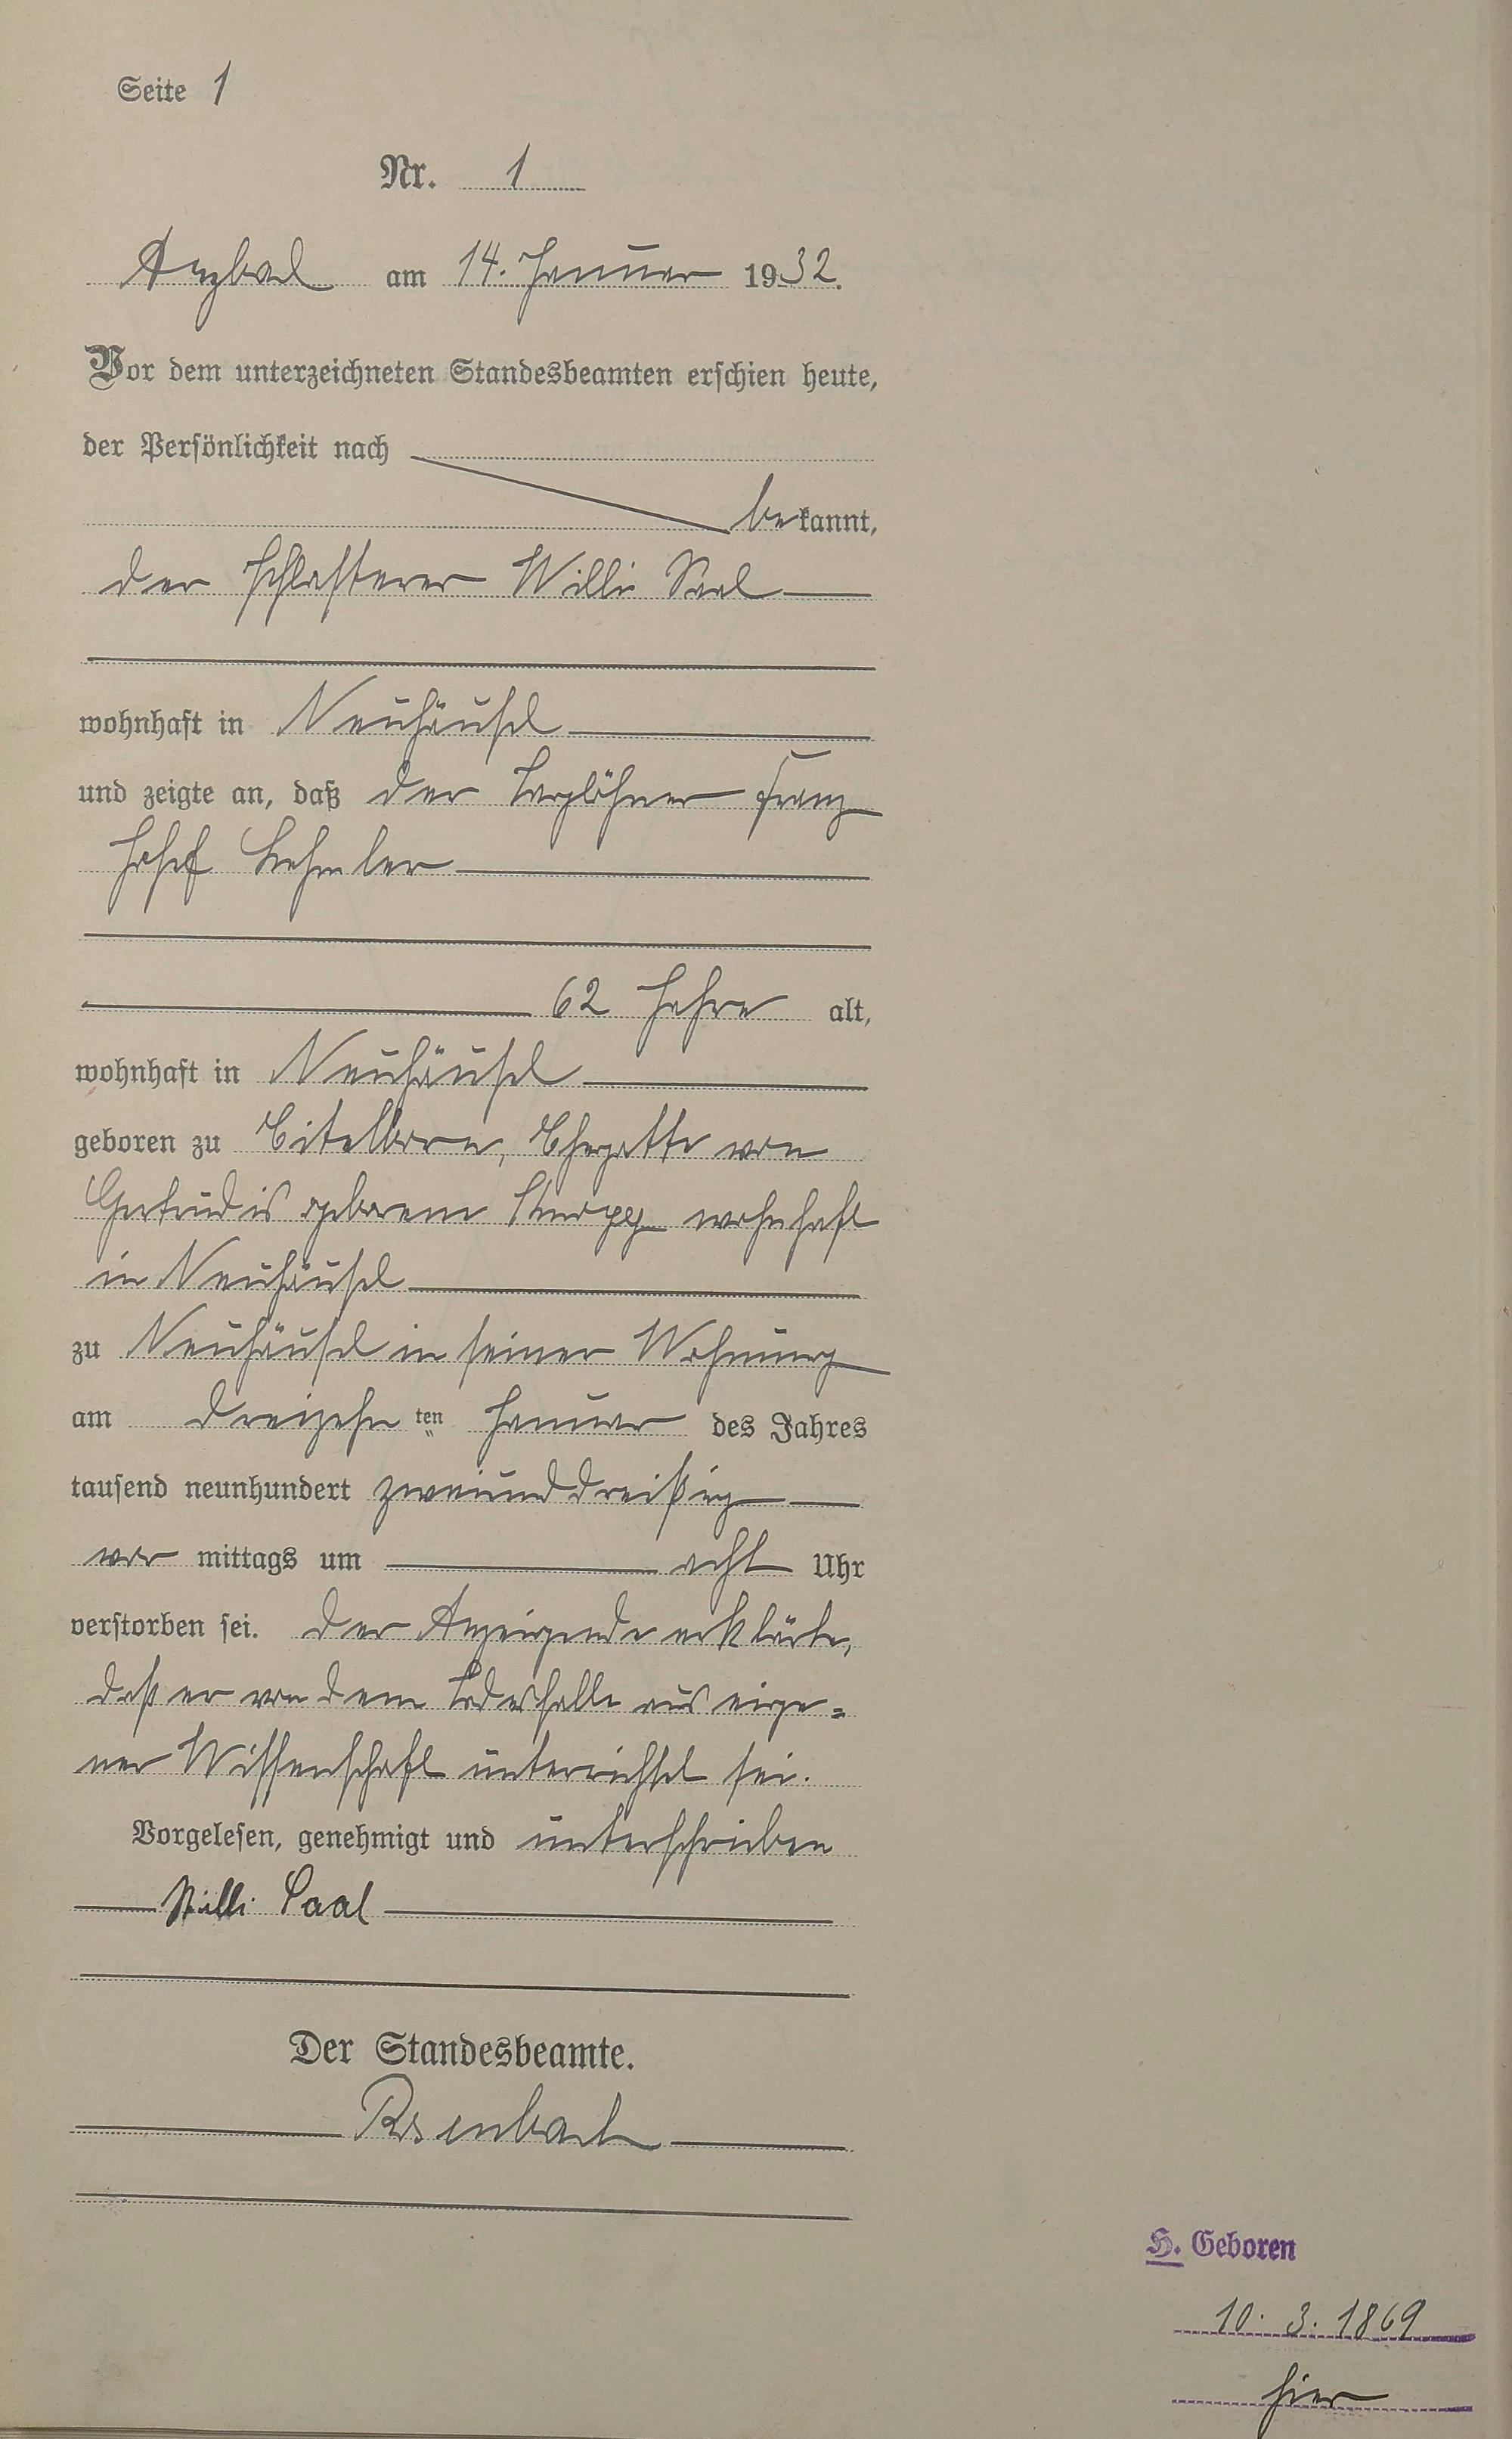 Seite 1
Nr. 1
Arzbach am 14. Januar 1932.
Vor dem unterzeichneten Standesbeamten erschien heute,
der Persönlichkeit nach
bekannt,
der Willi Saal
wohnhaft in Neuhäusel
und zeigte an, daß der Taglöhner Franz
Josef
62 Jahre alt,
wohnhaft in Neuhäusel
geboren zu Eitelborn, Ehegatte von
Gertrudis geborene wohnhaft
in Neuhäusel
zu Neuhäusel in seiner Wohnung
am dreizehn ten Januar des Jahres
tausend neunhundert zweiunddreißig
vor mittags um acht Uhr
verstorben sei. Der Anzeigende erklärte,
daß er von dem Todesfalle aus eige=
ner Wissenschaft unterrichtet sei.
Vorgelesen, genehmigt und unterschrieben
Willi Saal
Der Standesbeamte.
Rosenbach
H. Geboren
10. 3. 1869
hier